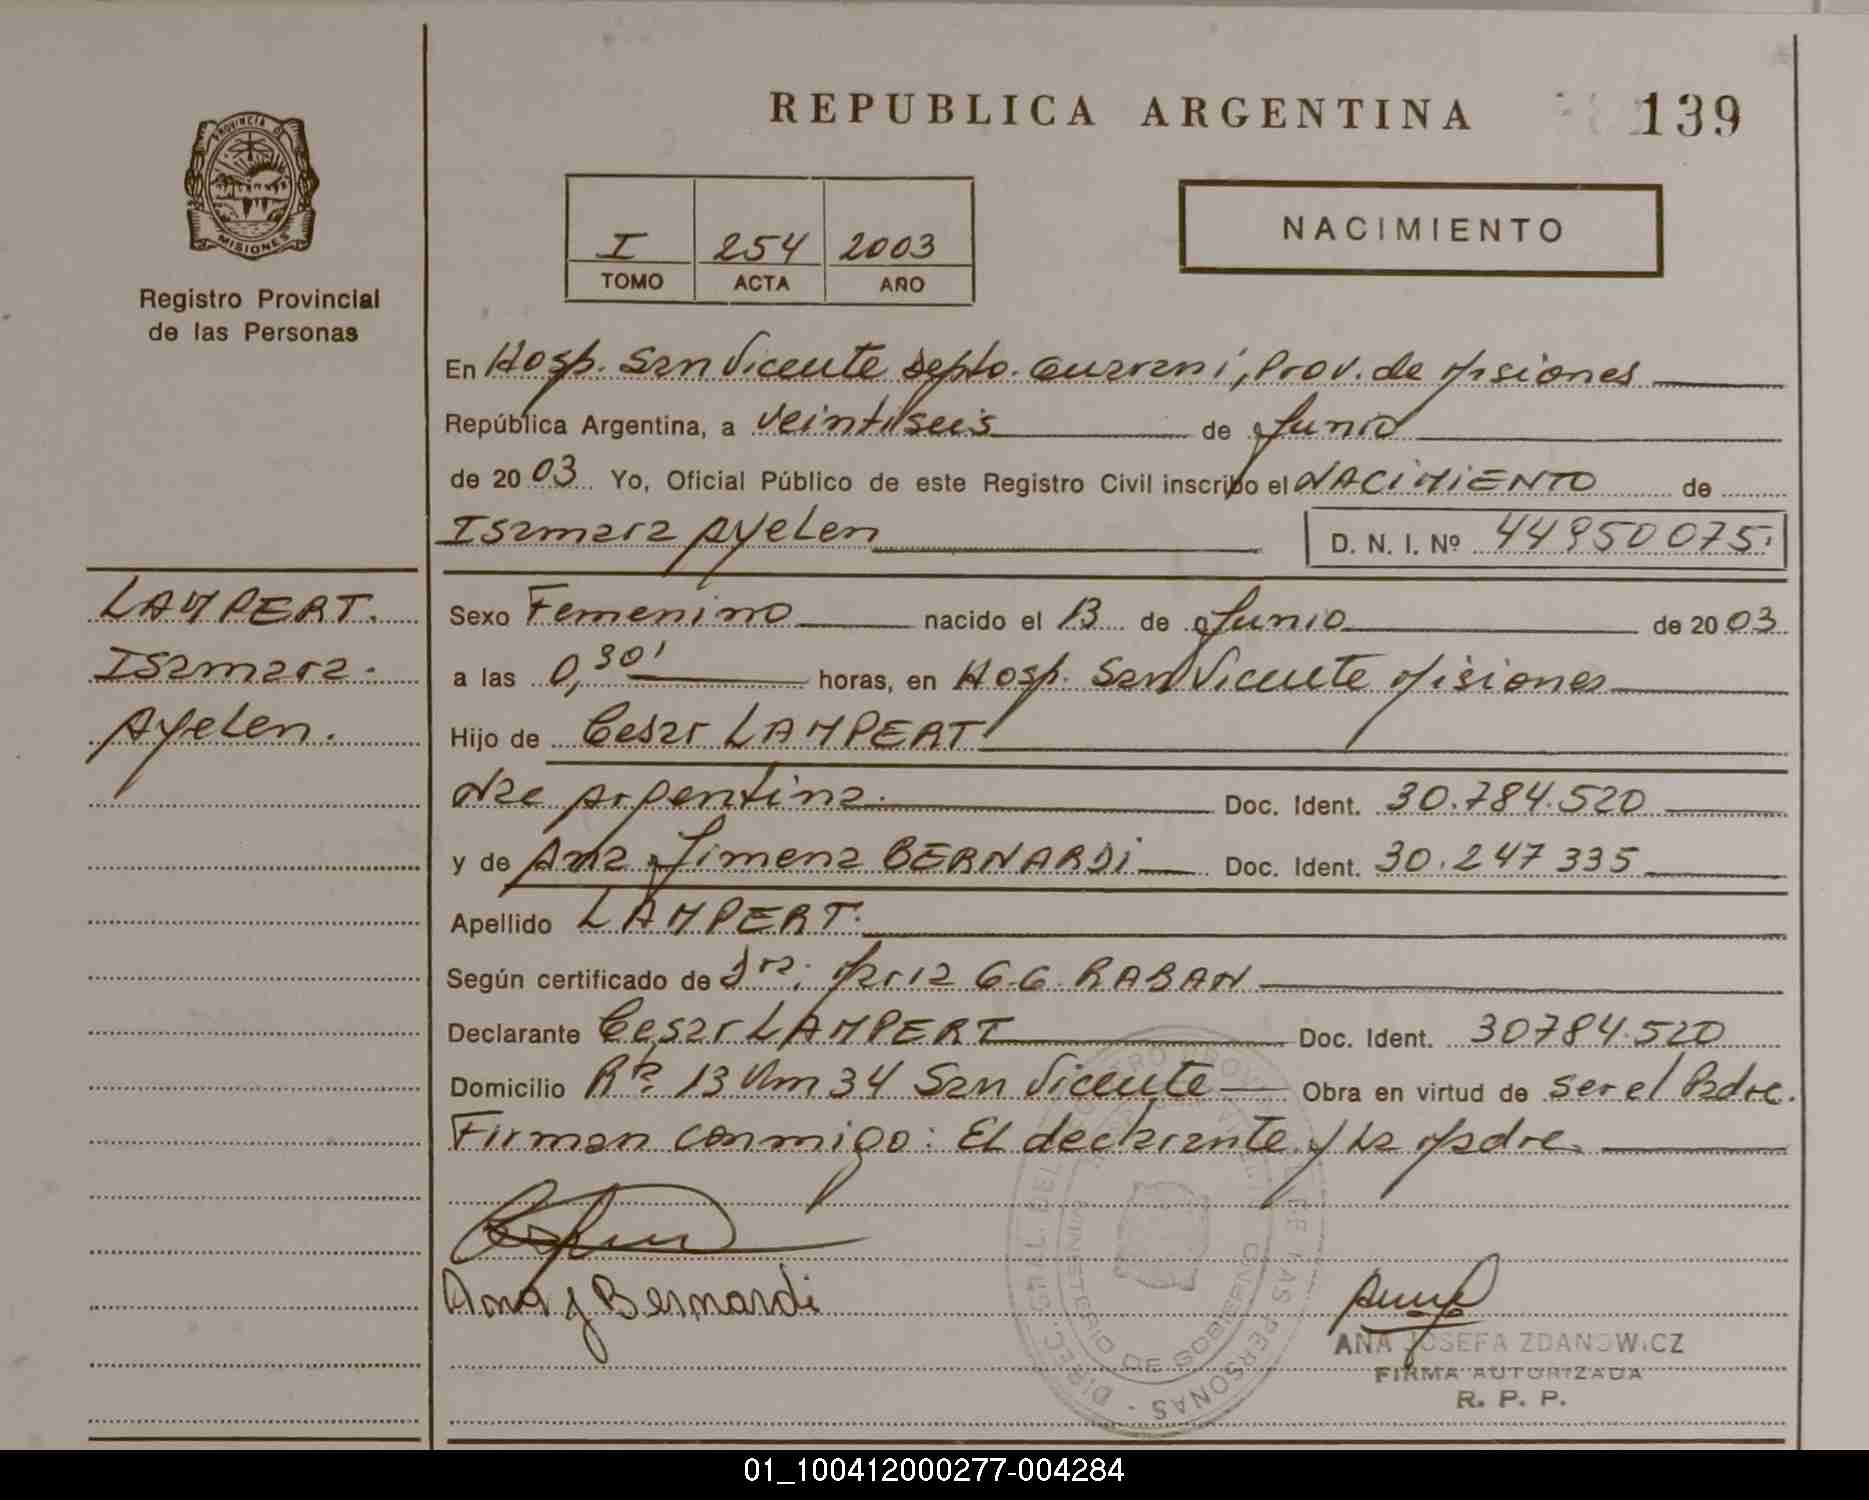 REPUBLICA ARGENTINA
139
PROVINCIA D
MISIONES
Registro Provincial
de las Personas
I 254 2003
TOMO ACTA AÑO
NACIMIENTO
En Hosp. San Vicente Depto. Guarani, Prov. de Misiones
República Argentina, a veintiseis de Junio
de 2003 Yo, Oficial Público de este Registro Civil inscribo el NACIMIENTO de
Isamara Ayelen
D. N. I. Nº 44950075.
LAMPERT.
Isamara.
Ayelen.
Sexo Femenino nacido el 13 de Junio de 2003
a las 0,30' horas, en Hosp. San Vicente Misiones
Hijo de Cesar LAMPERT
Nac Argentina. Doc. Ident. 30.784.520
y de Ana Jimena BERNARDI Doc. Ident. 30.247335
Apellido LAMPERT.
Según certificado de Dra. Maria G.G. RABAN
Declarante Cesar LAMPERT Doc. Ident. 30784.520
Domicilio Rta. 13 Km 34 San Vicente Obra en virtud de ser el Padre.
Firman conmigo: El declarante y La Madre.
Ana J Bernardi
DIREC. GRAL. DEL REGISTRO PROV. DE LAS PERSONAS
MINISTERIO DE GOBIERNO
ANA JOSEFA ZDANOWICZ
FIRMA AUTORIZADA
R. P. P.
01_100412000277-004284